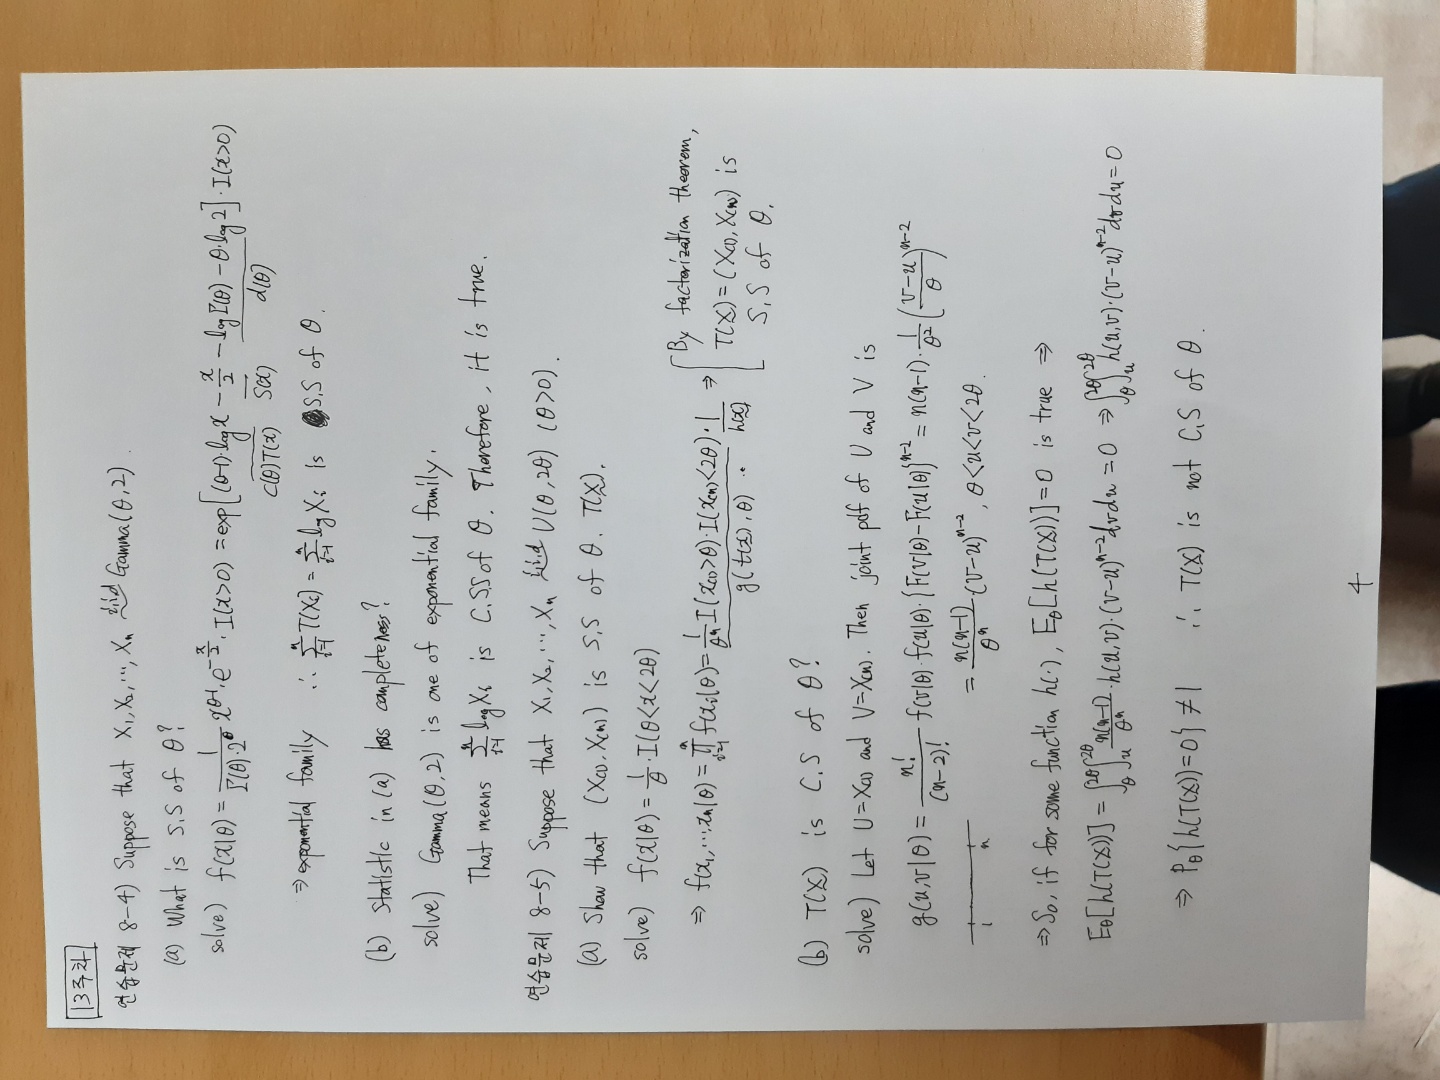 13주차
연습문제 8-4) Suppose that X₁, X₂, ⋯, Xₙ iid Gamma(θ, 2).
(a) What is S.S of θ?
solve) f(x|θ) = 1/(Γ(θ)·2^θ) x^(θ-1)·e^(-x/2)·I(x>0) = exp[(θ-1)·log x - x/2 - log Γ(θ) - θ·log 2]·I(x>0)
c(θ)T(x) S(x) d(θ)
⇒ exponential family ∴ Σ_{i=1}^n T(Xᵢ) = Σ_{i=1}^n log Xᵢ is S.S of θ.
(b) Statistic in (a) has completeness?
solve) Gamma(θ, 2) is one of exponential family.
That means Σ_{i=1}^n log Xᵢ is C.S.S of θ. Therefore, it is true.
연습문제 8-5) Suppose that X₁, X₂, ⋯, Xₙ iid U(θ, 2θ) (θ>0).
(a) Show that (X₍₁₎, X₍ₙ₎) is S.S of θ. T(X).
solve) f(x|θ) = 1/θ · I(θ<x<2θ)
⇒ f(x₁, ⋯, xₙ|θ) = Π_{i=1}^n f(xᵢ|θ) = 1/θⁿ I(x₍₁₎>θ)·I(x₍ₙ₎<2θ)·1 ⇒ [By factorization theorem,
g(t(x), θ) h(x) T(X) = (X₍₁₎, X₍ₙ₎) is
S.S of θ.
(b) T(X) is C.S of θ?
solve) Let U=X₍₁₎ and V=X₍ₙ₎. Then joint pdf of U and V is
g(u,v|θ) = n!/(n-2)! f(v|θ)·f(u|θ)·{F(v|θ)-F(u|θ)}^(n-2) = n(n-1)·1/θ²((v-u)/θ)^(n-2)
= n(n-1)/θⁿ (v-u)^(n-2), θ<u<v<2θ.
1 n
⇒ So, if for some function h(·), E_θ[h(T(X))]=0 is true ⇒
E_θ[h(T(X))] = ∫_θ^2θ ∫_u^2θ n(n-1)/θⁿ·h(u,v)·(v-u)^(n-2) dvdu = 0 ⇒ ∫_θ^2θ ∫_u^2θ h(u,v)·(v-u)^(n-2) dvdu = 0
⇒ P_θ{h(T(X))=0} ≠ 1 ∴ T(X) is not C.S of θ.
4